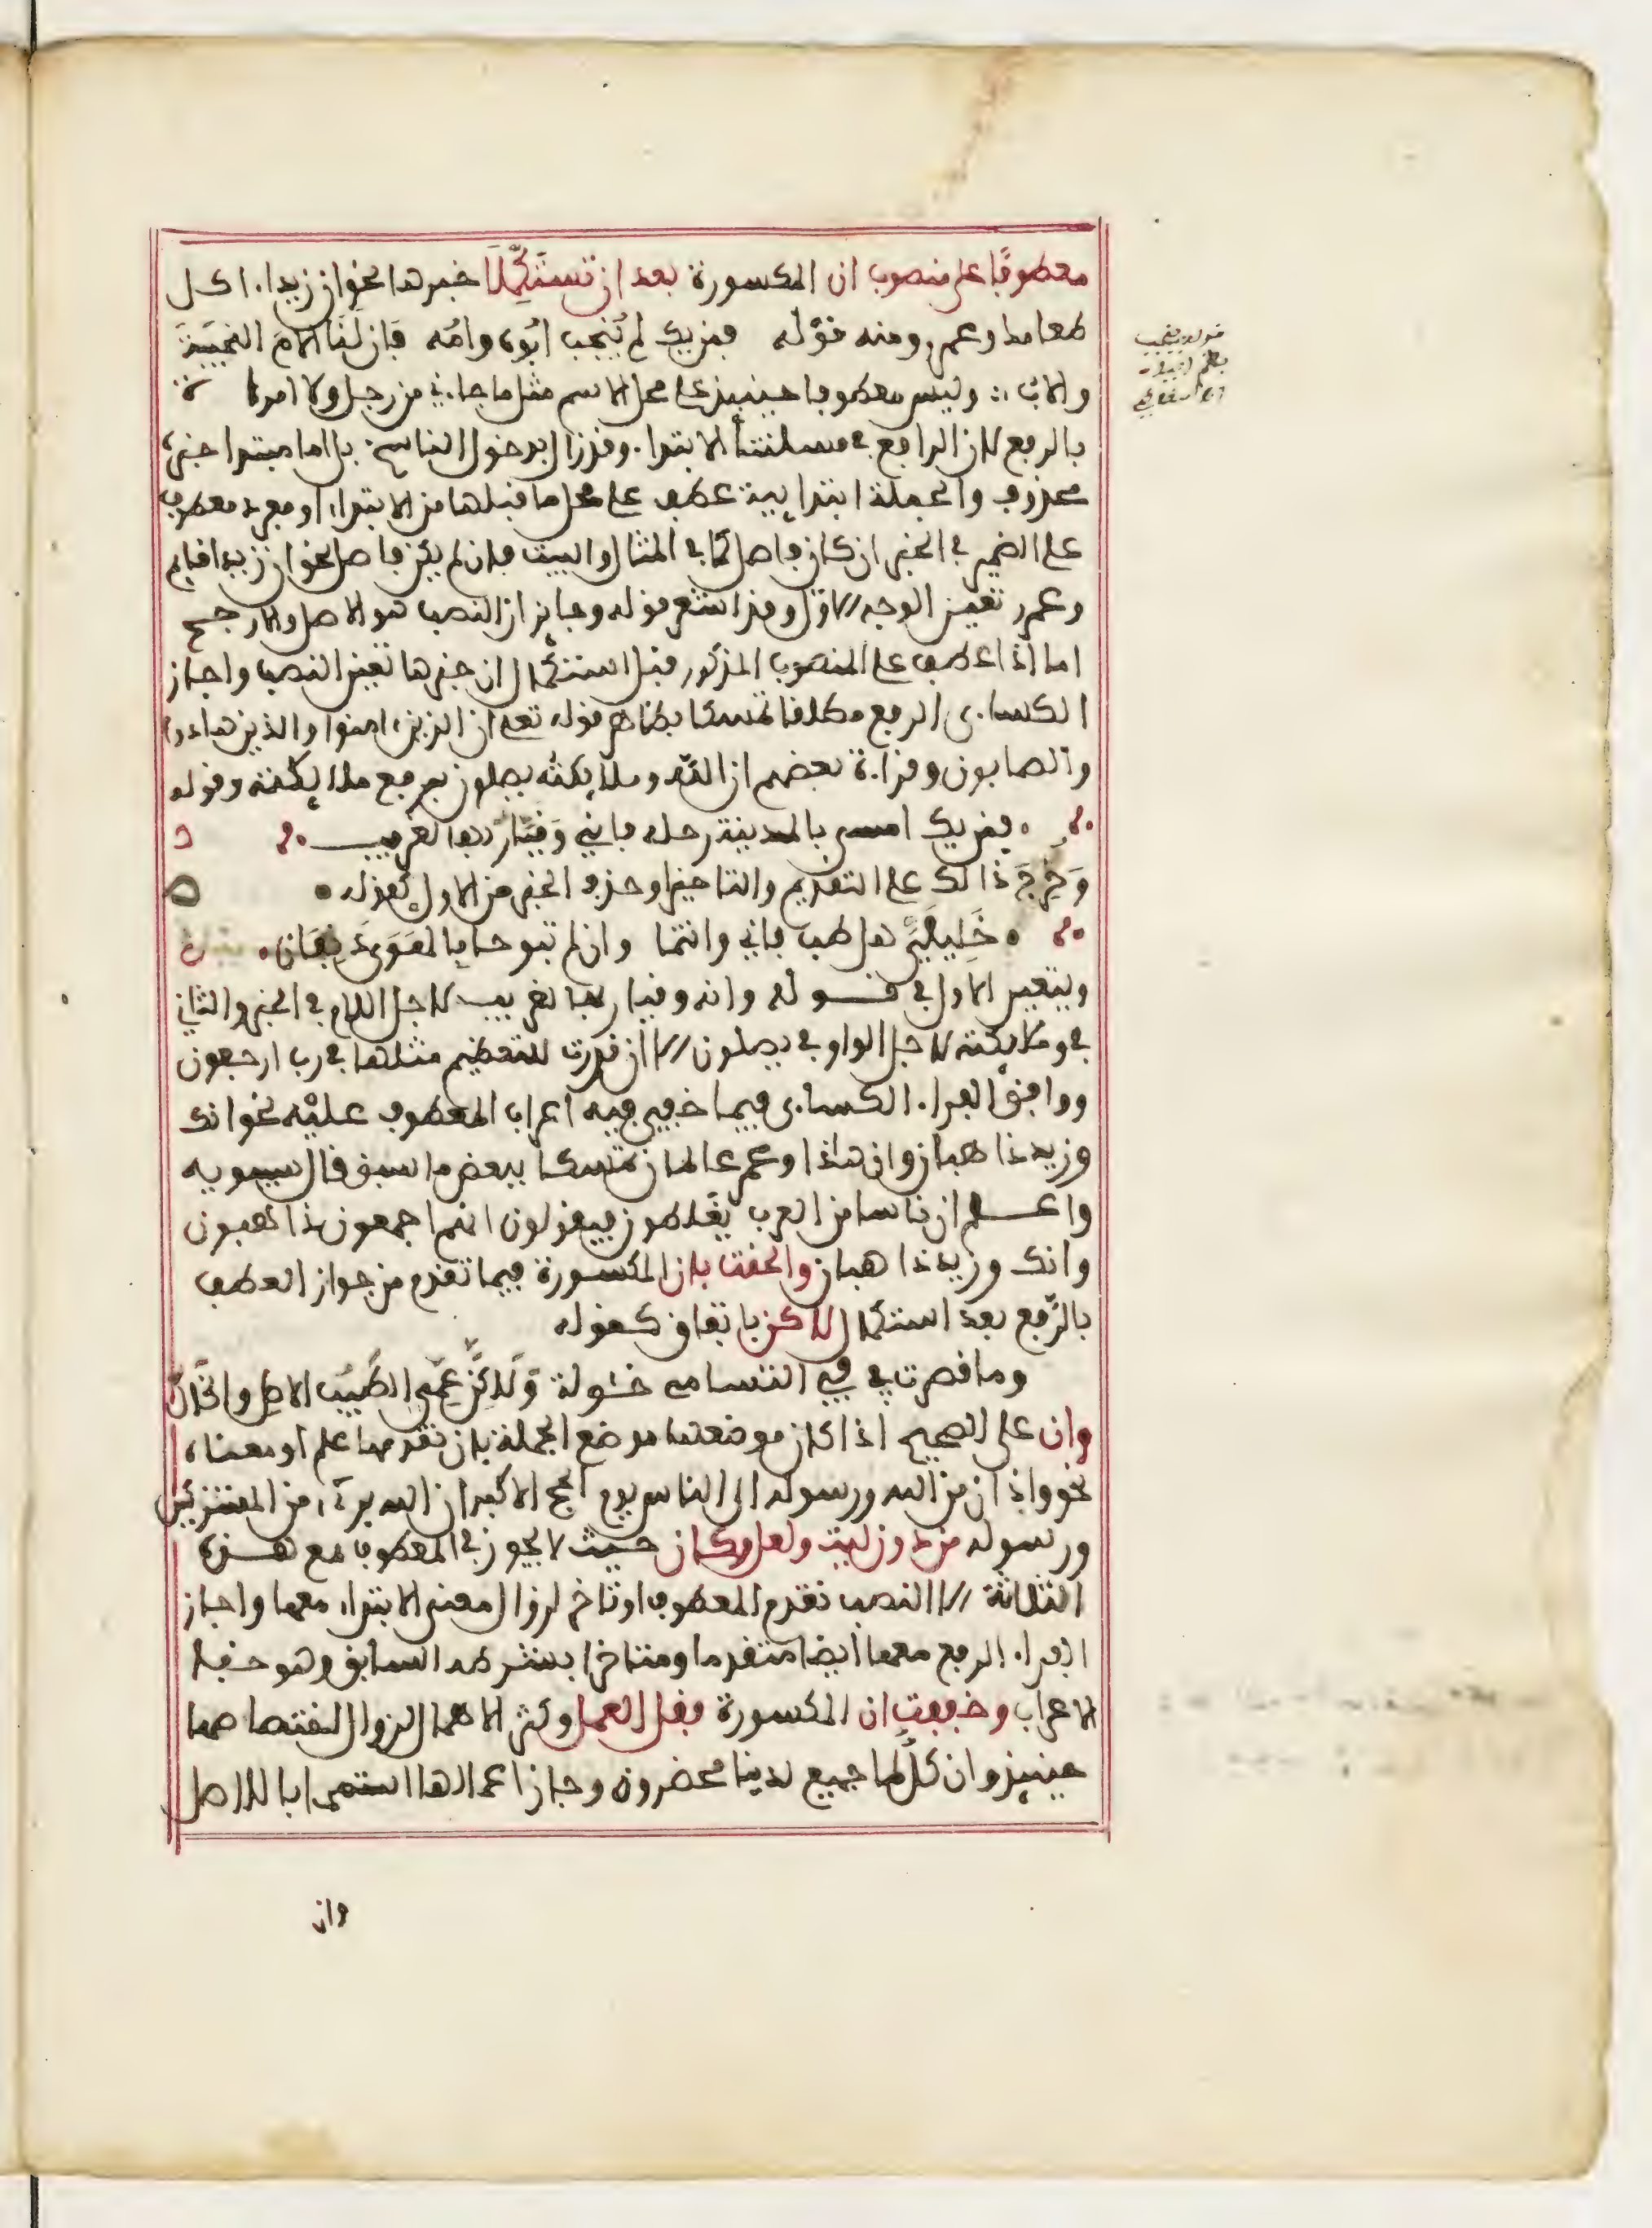 معطوفًا على منصوب ان المكسورة بعد ان تستكملا خبرها نحو ان زيدا ءاكل
طعامه وعمرو ومنه قوله فمن يك لم يُنجب ابوه وامه فإن لنا الامَ النجيبةَ
والابُ ؛ وليس معطوفا حينيذ على محل الاسم مثل ما جاءني من رجل ولا امراة
بالرفع لان الرافع في مسئلتنا الابتدا وقد زال بدخول الناسخ بل اما مبتدا خبره
محذوف والجملة ابتدايية عطف على محل ما قبلها من الابتداء او مفرد معطوف
على الضمير في الخبر ان كان فاصل كما في المثال والبيت فان لم يكن فاصل نحو ان زيدا قايم
وعمرو تعين الوجه الاول وقد اشعر قوله وجايز ان النصب هو الاصل والارجح
اما اذا عطف على المنصوب المذكور قبل استكمال ان خبرها تعين النصب واجاز
الكساءى الرفع مطلقا تمسكا بظاهر قوله تعلى ان الذين ءامنوا والذين هادوا
والصابون وقراءة بعضهم ان الله وملايكته يصلون برفع ملايكته وقوله
فمن يك امسى بالمدينة رحله فاني وقيار بها لغريب
وخرج ذالك على التقديم والتاخير او حذف الخبر من الاول كقوله
خليلي هل طب فاني وانتما وان لم تبوحا بالهوى دنفان
ويتعين الاول في قوله وانه وقيار بها لغريب لاجل اللام في الخبر والثاني
في وملايكته لاجل الواو في يصلون الا ان قدرت للتعظيم مثلها في رب ارجعون
ووافق الفراء الكساءى فيما خفي فيه اعراب المعطوف عليه نحو انك
وزيد ذاهبان وان هاذا وعمرو عالمان تمسكا ببعض ما سبق قال سيبويه
واعلم ان ناسا من العرب يغلطون فيقولون انهم اجمعون ذاهبون
وانك وزيد ذاهبان والحقت بان المكسورة فيما تقدم من جواز العطف
بالرفع بعد استكمال لاكن باتفاق كقوله
وما قصرت بي في التسامى خئولة ولاكن عمي الطيب الاصل والخال
وان على الصحيح اذا كان موضعها موضع الجملة بان تقدمها علم او معناه
نحو واذان من الله ورسوله الى الناس يوم الحج الاكبر ان الله برىء من المشركين
ورسوله من دون ليت ولعل وكان حيث لا يجوز في المعطوف مع هذه
الثلاثة الا النصب تقدم المعطوف او تاخر لزوال معنى الابتداء معها واجاز
الفراء الرفع معها ايضا متقدما ومتاخرا بشرطه السابق وهو خفاء
الاعراب وخففت ان المكسورة فقل العمل وكثر الاهمال لزوال اختصاصها
حينيذ وان كل لما جميع لدينا محضرون وجاز اعمالها استصحابا للاصل
وان